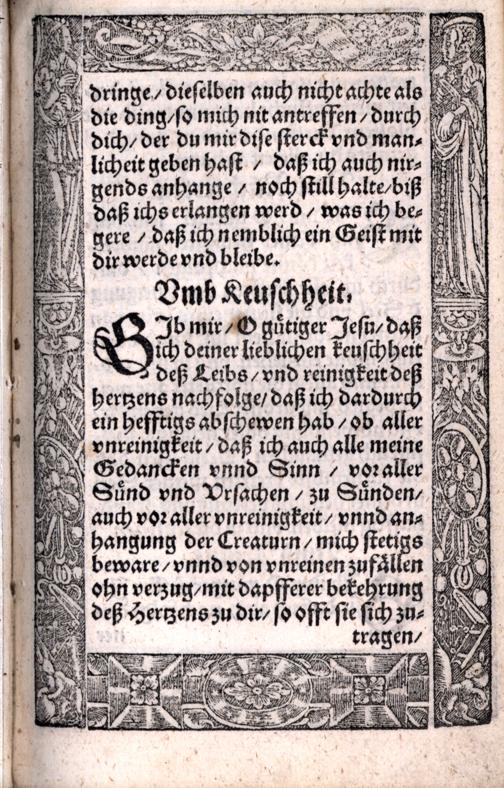 dringe/ dieselben auch nicht achte als
die ding/ so mich nit antreffen/ durch
dich/ der du mir dise sterck vnd man-
licheit geben hast / daß ich auch nir-
gends anhange / noch still halte/ biß
daß ichs erlangen werd / was ich be-
gere / daß ich nemblich ein Geist mit
dir werde vnd bleibe.
Vmb Keuschheit.
GIb mir/ O gütiger Jesu/ daß
ich deiner lieblichen keuschheit
deß Leibs/ vnd reinigkeit deß
hertzens nachfolge/ daß ich dardurch
ein hefftigs abschewen hab/ ob aller
vnreinigkeit/ daß ich auch alle meine
Gedancken vnnd Sinn / vor aller
Sünd vnd Vrsachen / zu Sünden/
auch vor aller vnreinigkeit/ vnnd an-
hangung der Creaturn/ mich stetigs
beware/ vnnd von vnreinen zufällen
ohn verzug/ mit dapfferer bekehrung
deß Hertzens zu dir/ so offt sie sich zu-
tragen/